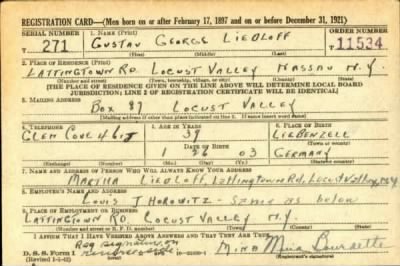 REGISTRATION CARD—(Men born on or after February 17, 1897 and on or before December 31, 1921)
SERIAL NUMBER 1. NAME (Print) ORDER NUMBER
T 271 GUSTAV GEORGE LIEDLOFF T 11534
(First) (Middle) (Last)
2. PLACE OF RESIDENCE (Print)
LATTINGTOWN RD. LOCUST VALLEY NASSAU N.Y.
(Number and street) (Town, township, village, or city) (County) (State)
[THE PLACE OF RESIDENCE GIVEN ON THE LINE ABOVE WILL DETERMINE LOCAL BOARD
JURISDICTION; LINE 2 OF REGISTRATION CERTIFICATE WILL BE IDENTICAL]
3. MAILING ADDRESS
BOX 87 LOCUST VALLEY
[Mailing address if other than place indicated on line 2. If same insert word same]
4. TELEPHONE 5. AGE IN YEARS 6. PLACE OF BIRTH
GLEN COVE 39 LIEBENZELL
DATE OF BIRTH (Town or county)
1 26 03 GERMANY
(Exchange) (Number) (Mo.) (Day) (Yr.) (State or country)
7. NAME AND ADDRESS OF PERSON WHO WILL ALWAYS KNOW YOUR ADDRESS
MARTHA LIEDLOFF, LATTINGTOWN RD, LOCUST VALLEY, NY
8. EMPLOYER'S NAME AND ADDRESS
LOUIS J HOROWITZ - SAME AS BELOW
9. PLACE OF EMPLOYMENT OR BUSINESS
LATTINGTOWN RD LOCUST VALLEY N.Y.
(Number and street or R. F. D. number) (Town) (County) (State)
I AFFIRM THAT I HAVE VERIFIED ABOVE ANSWERS AND THAT THEY ARE TRUE.
Reg signature on
D. S. S. Form 1 Mina
(Revised 1-5-42)